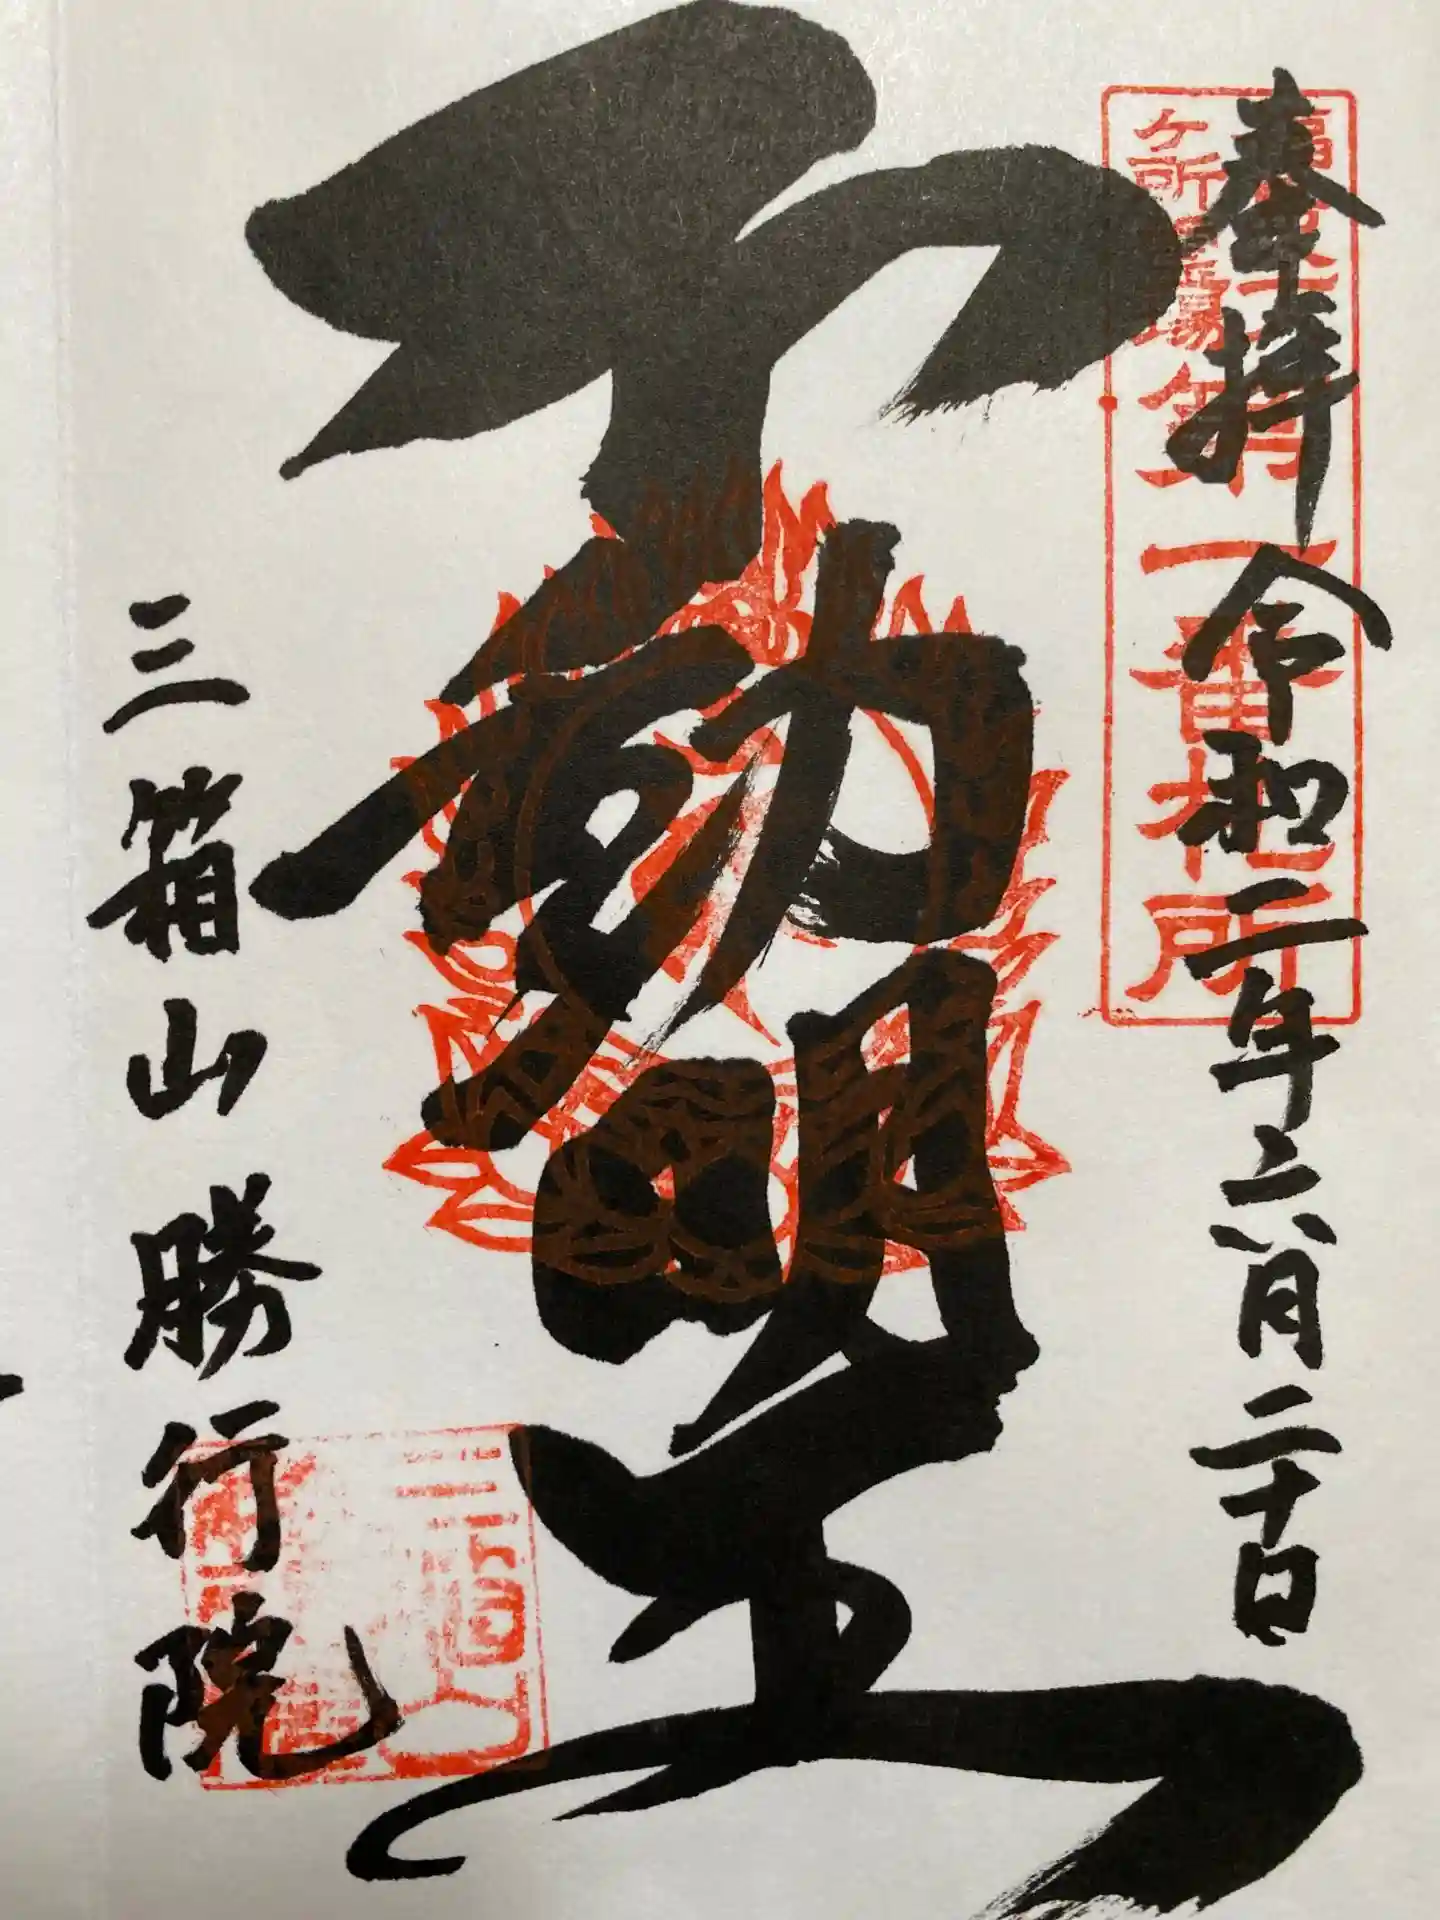 奉拝 令和二年六月二十日
第一番札所
不動明王
三箱山勝行院